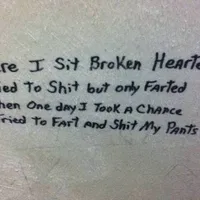 re I Sit Broken Hearte
ied To Shit but only Farted
hen One day I Took A Chance
Tried to Fart and Shit My Pants